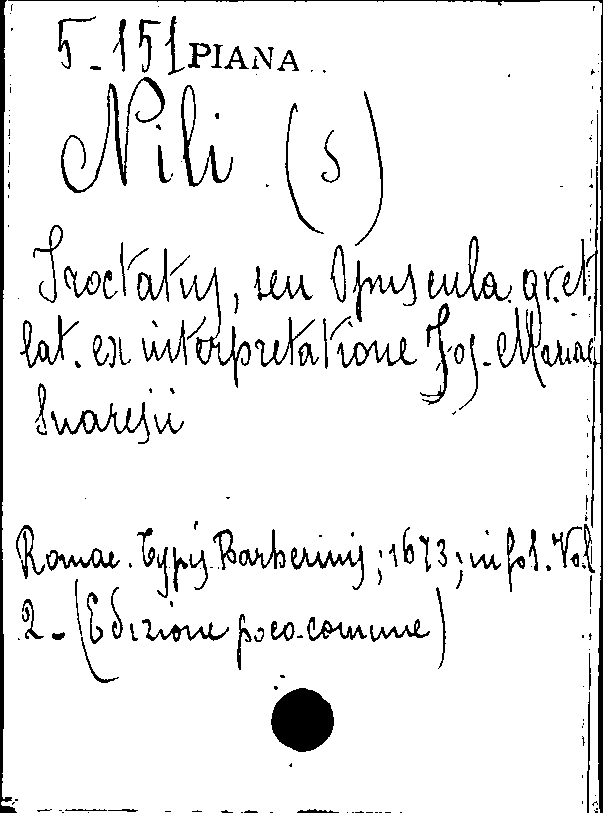 5-151 PIANA
Nili (S)
Tractatus, seu Opuscula gr. et
lat. ex interpretatione Jos. Mariae
Suaresii
Romae. Typis Barberinis; 1673; in fol. Vol
2 - (Edizione poco comune)